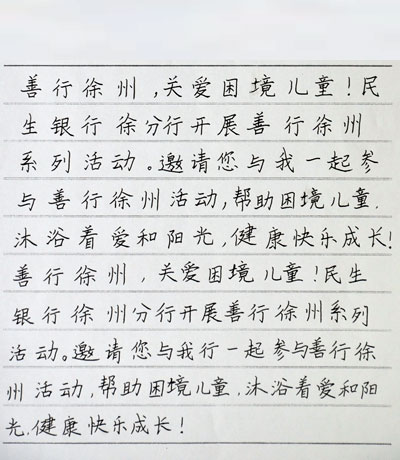 善行徐州,关爱困境儿童!民
生银行徐分行开展善行徐州
系列活动。邀请您与我一起参
与善行徐州活动,帮助困境儿童.
沐浴着爱和阳光,健康快乐成长!
善行徐州,关爱困境儿童!民生
银行徐州分行开展善行徐州系列
活动。邀请您与我行一起参与善行徐
州活动,帮助困境儿童,沐浴着爱和阳
光,健康快乐成长!